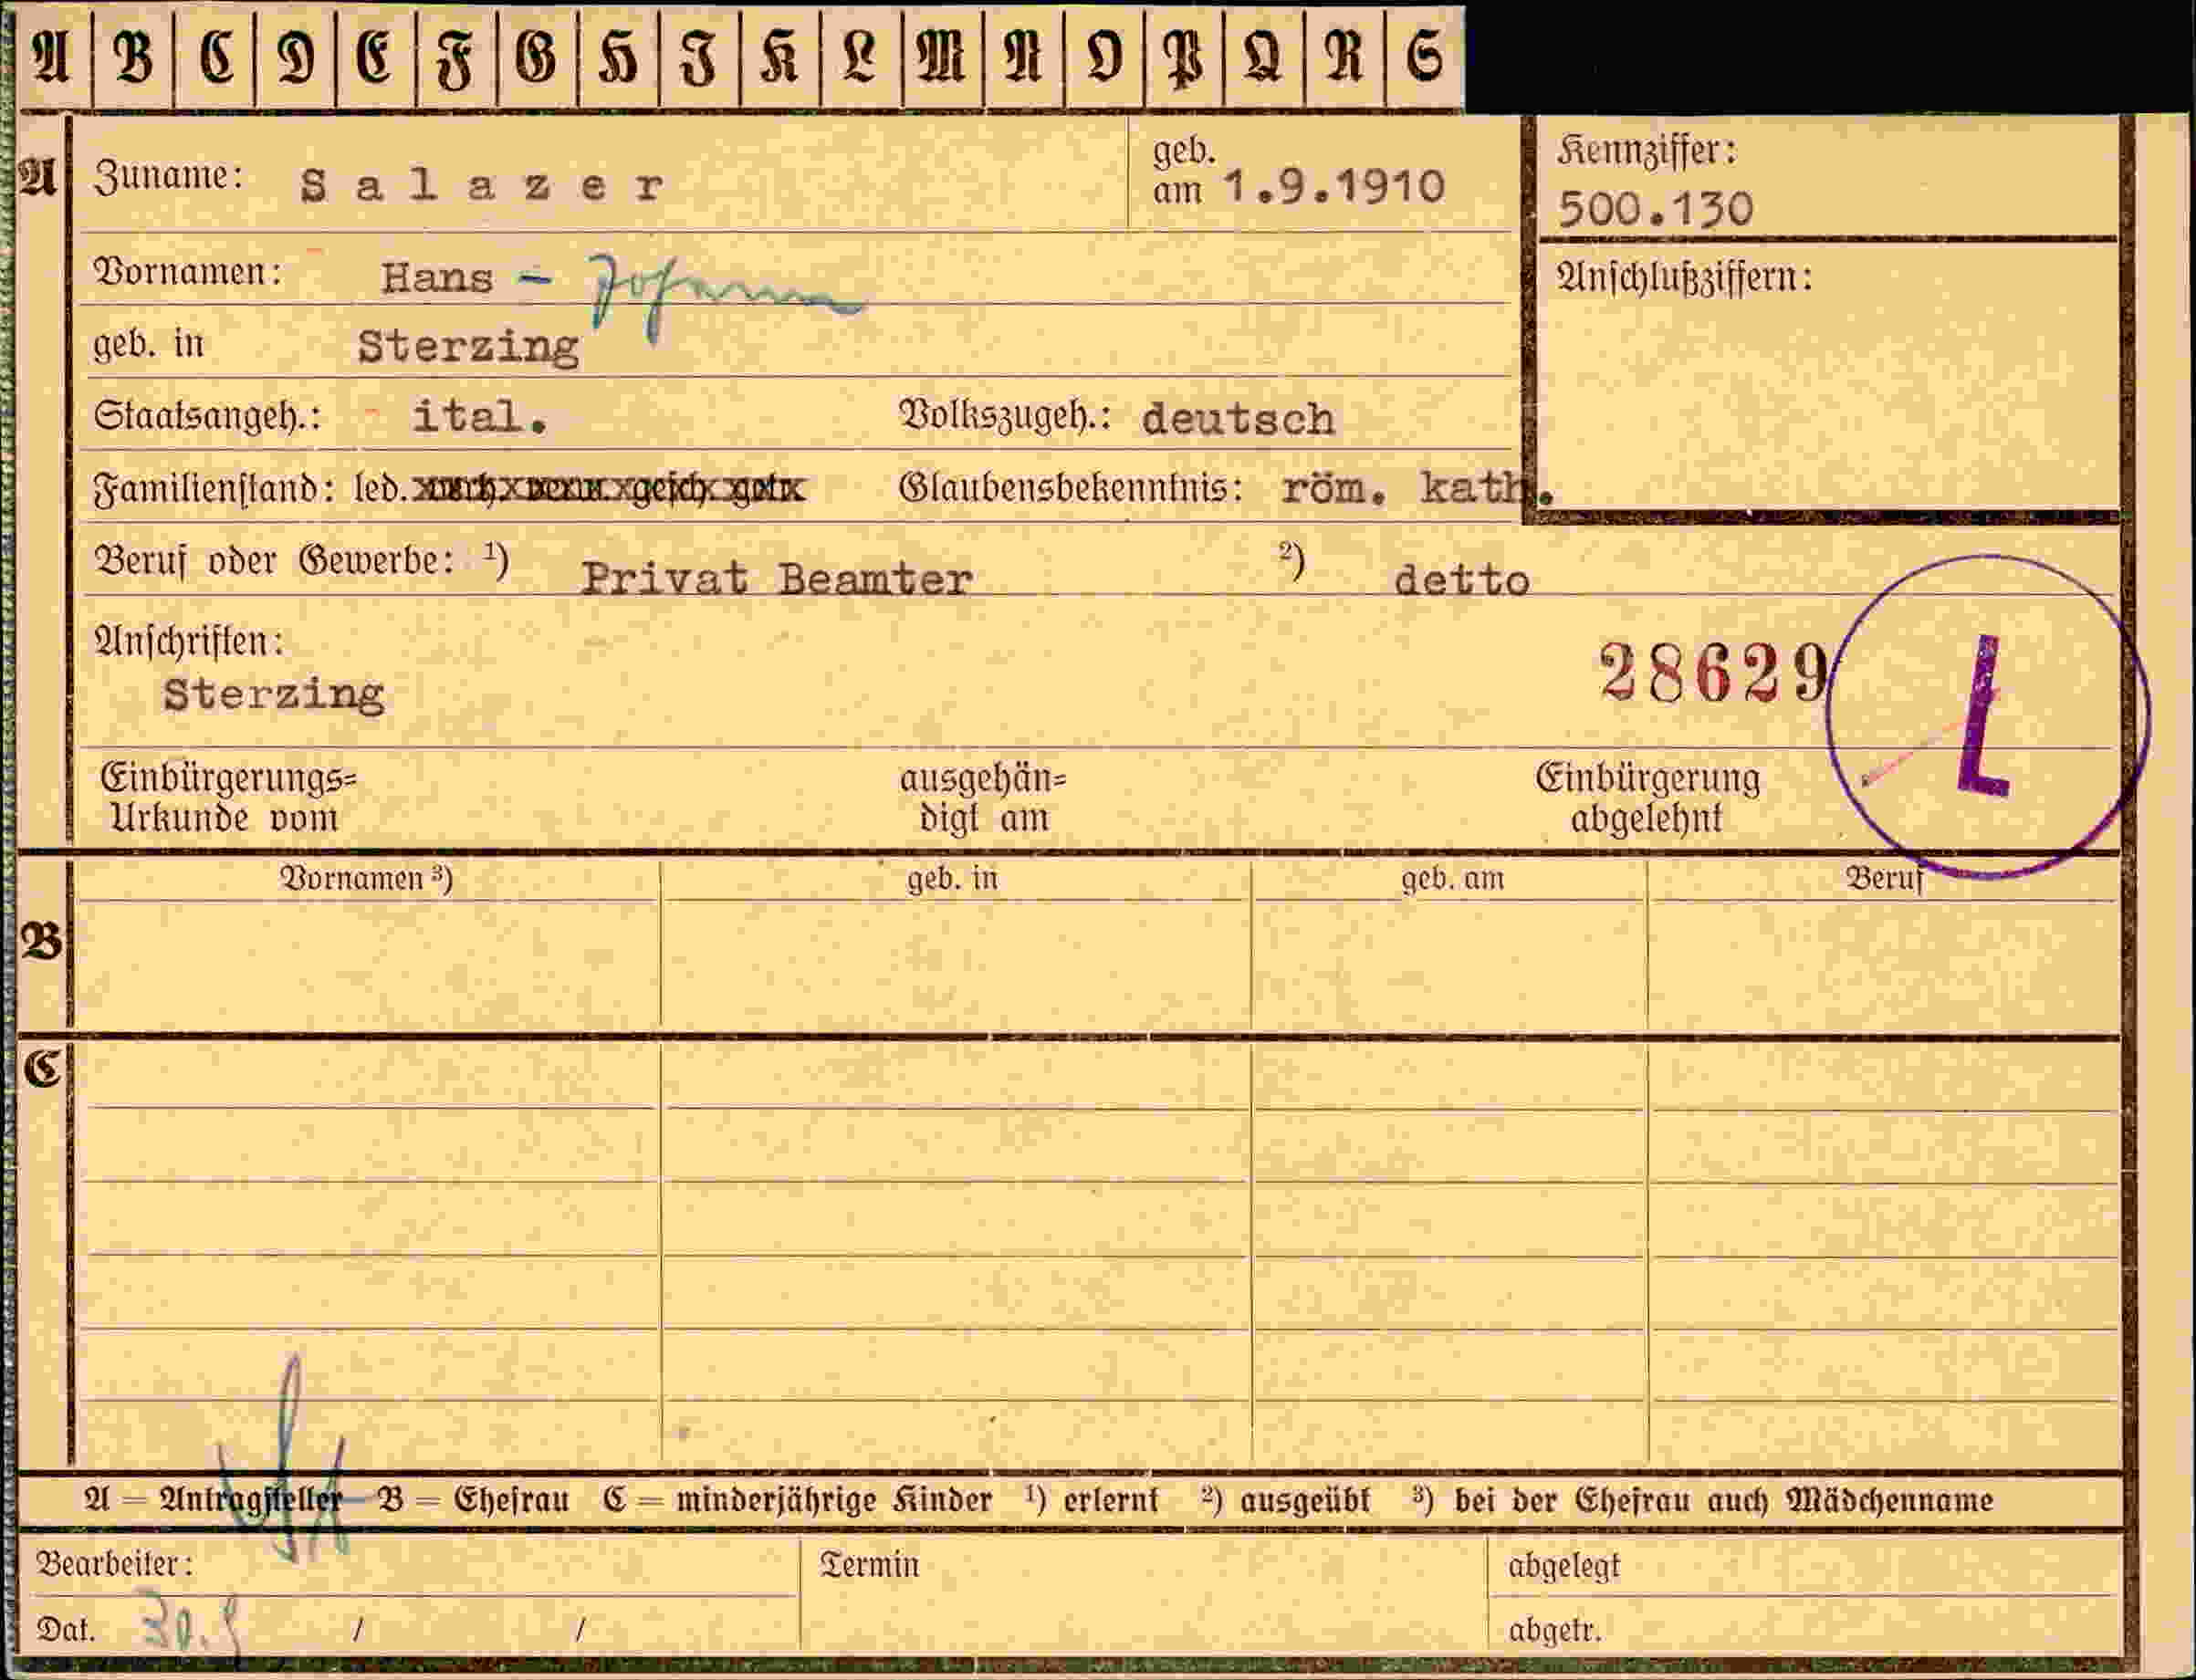 A B C D E F G H I K L M N O P Q R S
A Zuname: Salazer geb. am 1.9.1910 Kennziffer: 500.130
Vornamen: Hans - Johann Anschlußziffern:
geb. in Sterzing
Staatsangeh.: ital. Volkszugeh.: deutsch
Familienstand: led. verh. verw. gesch. getr. Glaubensbekenntnis: röm. kath.
Beruf oder Gewerbe: ¹) Privat Beamter ²) detto
Anschriften: 28629 L
Sterzing
Einbürgerungs= ausgehän= Einbürgerung
Urkunde vom digt am abgelehnt
Vornamen ³) geb. in geb. am Beruf
B
C
A = Antragsteller B = Ehefrau C = minderjährige Kinder ¹) erlernt ²) ausgeübt ³) bei der Ehefrau auch Mädchenname
Bearbeiter: Termin abgelegt
Dat. 30.9 / / abgetr.